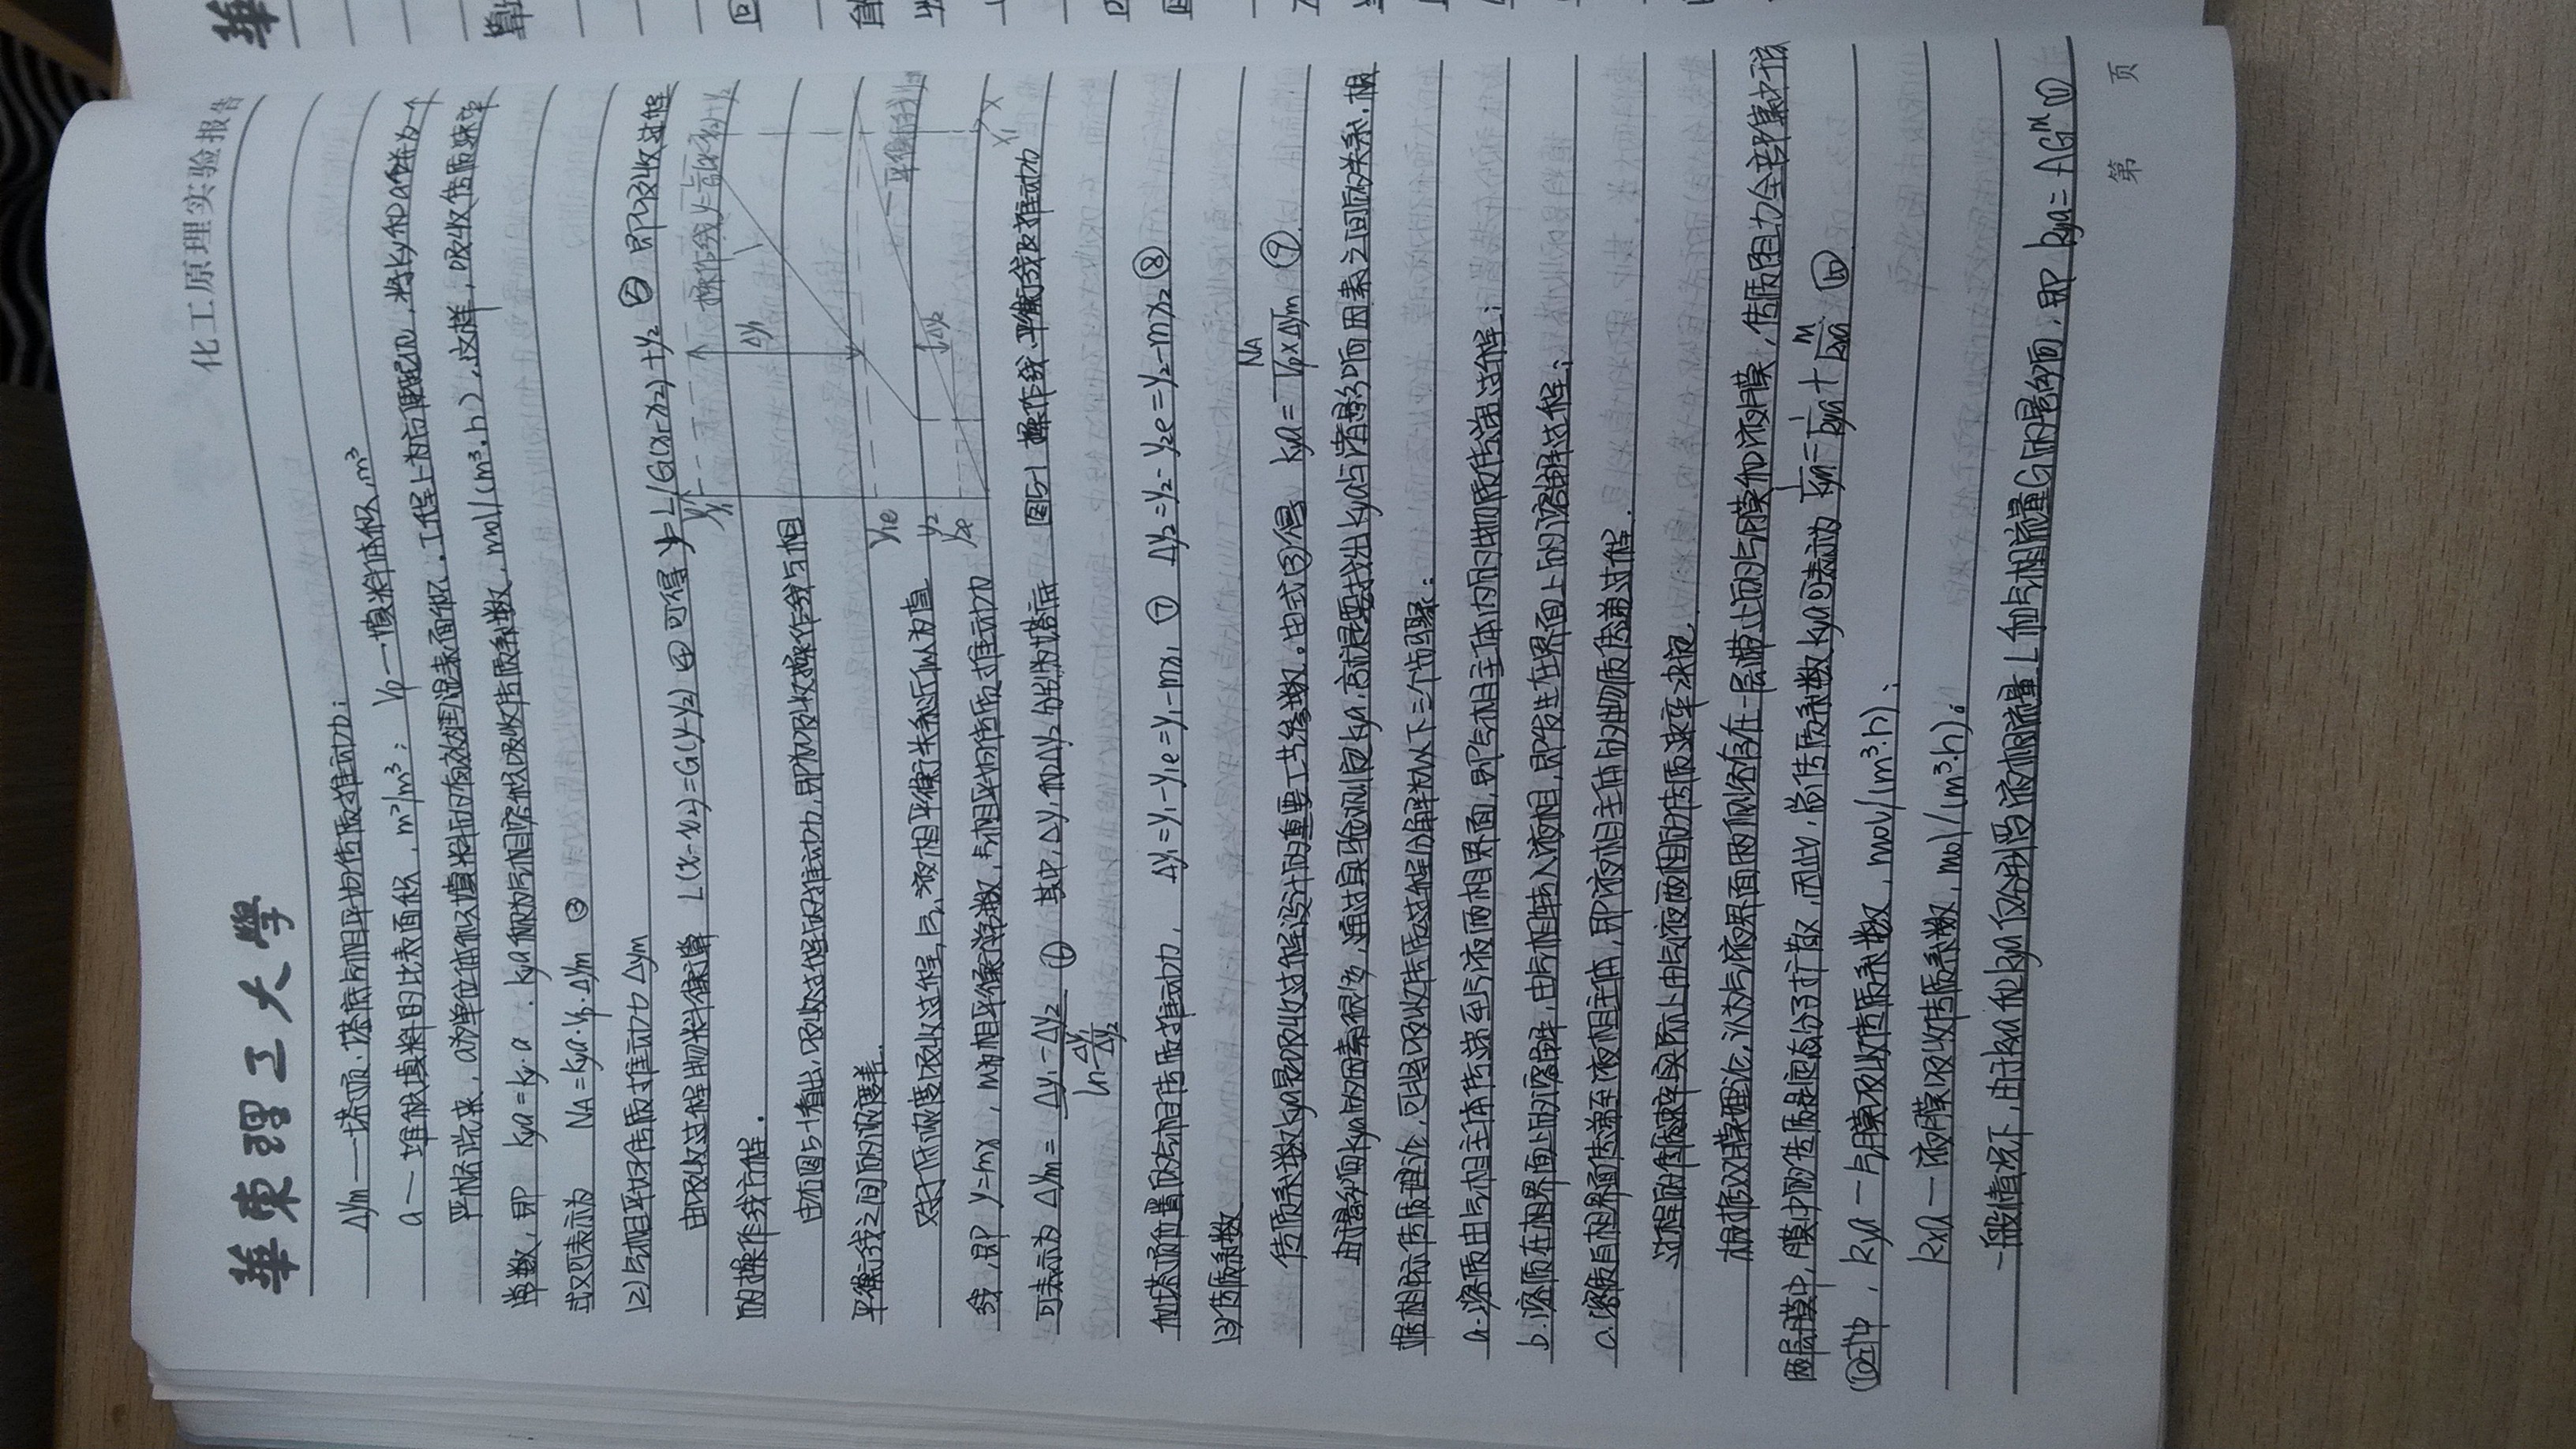 化工原理实验报告
華東理工大學
Δym——塔顶、塔底气相平均传质推动力;
a — 堆积填料的比表面积, m²/m³; Vp — 填料体积, m³
严格说来, a为单位体积填料的有效润湿表面积. 工程上为方便起见, 将Ky和a合并为一个
常数, 即 Kya=Ky·a. Kya称为气相容积吸收传质系数, mol/(m³·h), 这样, 吸收传质速率
式又可表示为 NA=Kya·Vp·Δym ③
(2)气相平均传质推动力Δym
由吸收过程物料衡算 L(x-x2)=G(y-y2) ④ 可得 y=L/G(x-x2)+y2 ⑤ 即吸收过程
的操作线方程.
由右图5-1看出, 吸收过程的推动力, 即为吸收操作线与相
平衡线之间的浓度差.
对于低浓度吸收过程, 气、液相平衡关系近似为直
线, 即 y=mx, m为相平衡常数, 气相平均传质推动力
可表示为 Δym= (Δy1-Δy2)/(ln Δy1/Δy2) ⑥ 其中, Δy1和Δy2分别为塔底
y1
操作线 y=L/G(x-x2)+y2
Δy1
y1e
平衡线
y2
Δy2
y2e
x1 x
图5-1 操作线、平衡线及推动力
和塔顶位置的气相传质推动力, Δy1=y1-y1e=y1-mx1 ⑦ Δy2=y2-y2e=y2-mx2 ⑧
(3)传质系数
传质系数Kya是吸收过程设计的重要工艺参数。由式③得 Kya= NA/(Vp×Δym) ⑨
由于影响Kya的因素很多, 通过实验测定Kya, 就是要找出Kya与诸影响因素之间的关系. 根
据相际传质理论, 可将吸收传质过程分解为以下三个步骤:
a. 溶质由气相主体传递至气液两相界面, 即气相主体内的物质传递过程;
b. 溶质在相界面上的溶解, 由气相转入液相, 即发生在界面上的溶解过程;
c. 溶质自相界面传递至液相主体, 即液相主体的物质传递过程.
过程的传质速率实际上由气液两相的传质速率决定.
根据双膜理论, 认为气液界面两侧各存在一层滞止的气膜和液膜, 传质阻力全部集中于该
两层膜中, 膜中的传质是定态分子扩散, 因此, 总传质系数Kya可表示为 1/Kya=1/kya+m/kxa ⑩
⑩式中, kya — 气膜吸收传质系数, mol/(m³·h);
kxa — 液膜吸收传质系数, mol/(m³·h)。
一般情况下, 由于kxa和kya仅分别受液相流量L和气相流量G的影响, 即 kya=AG^m ⑪
第 页